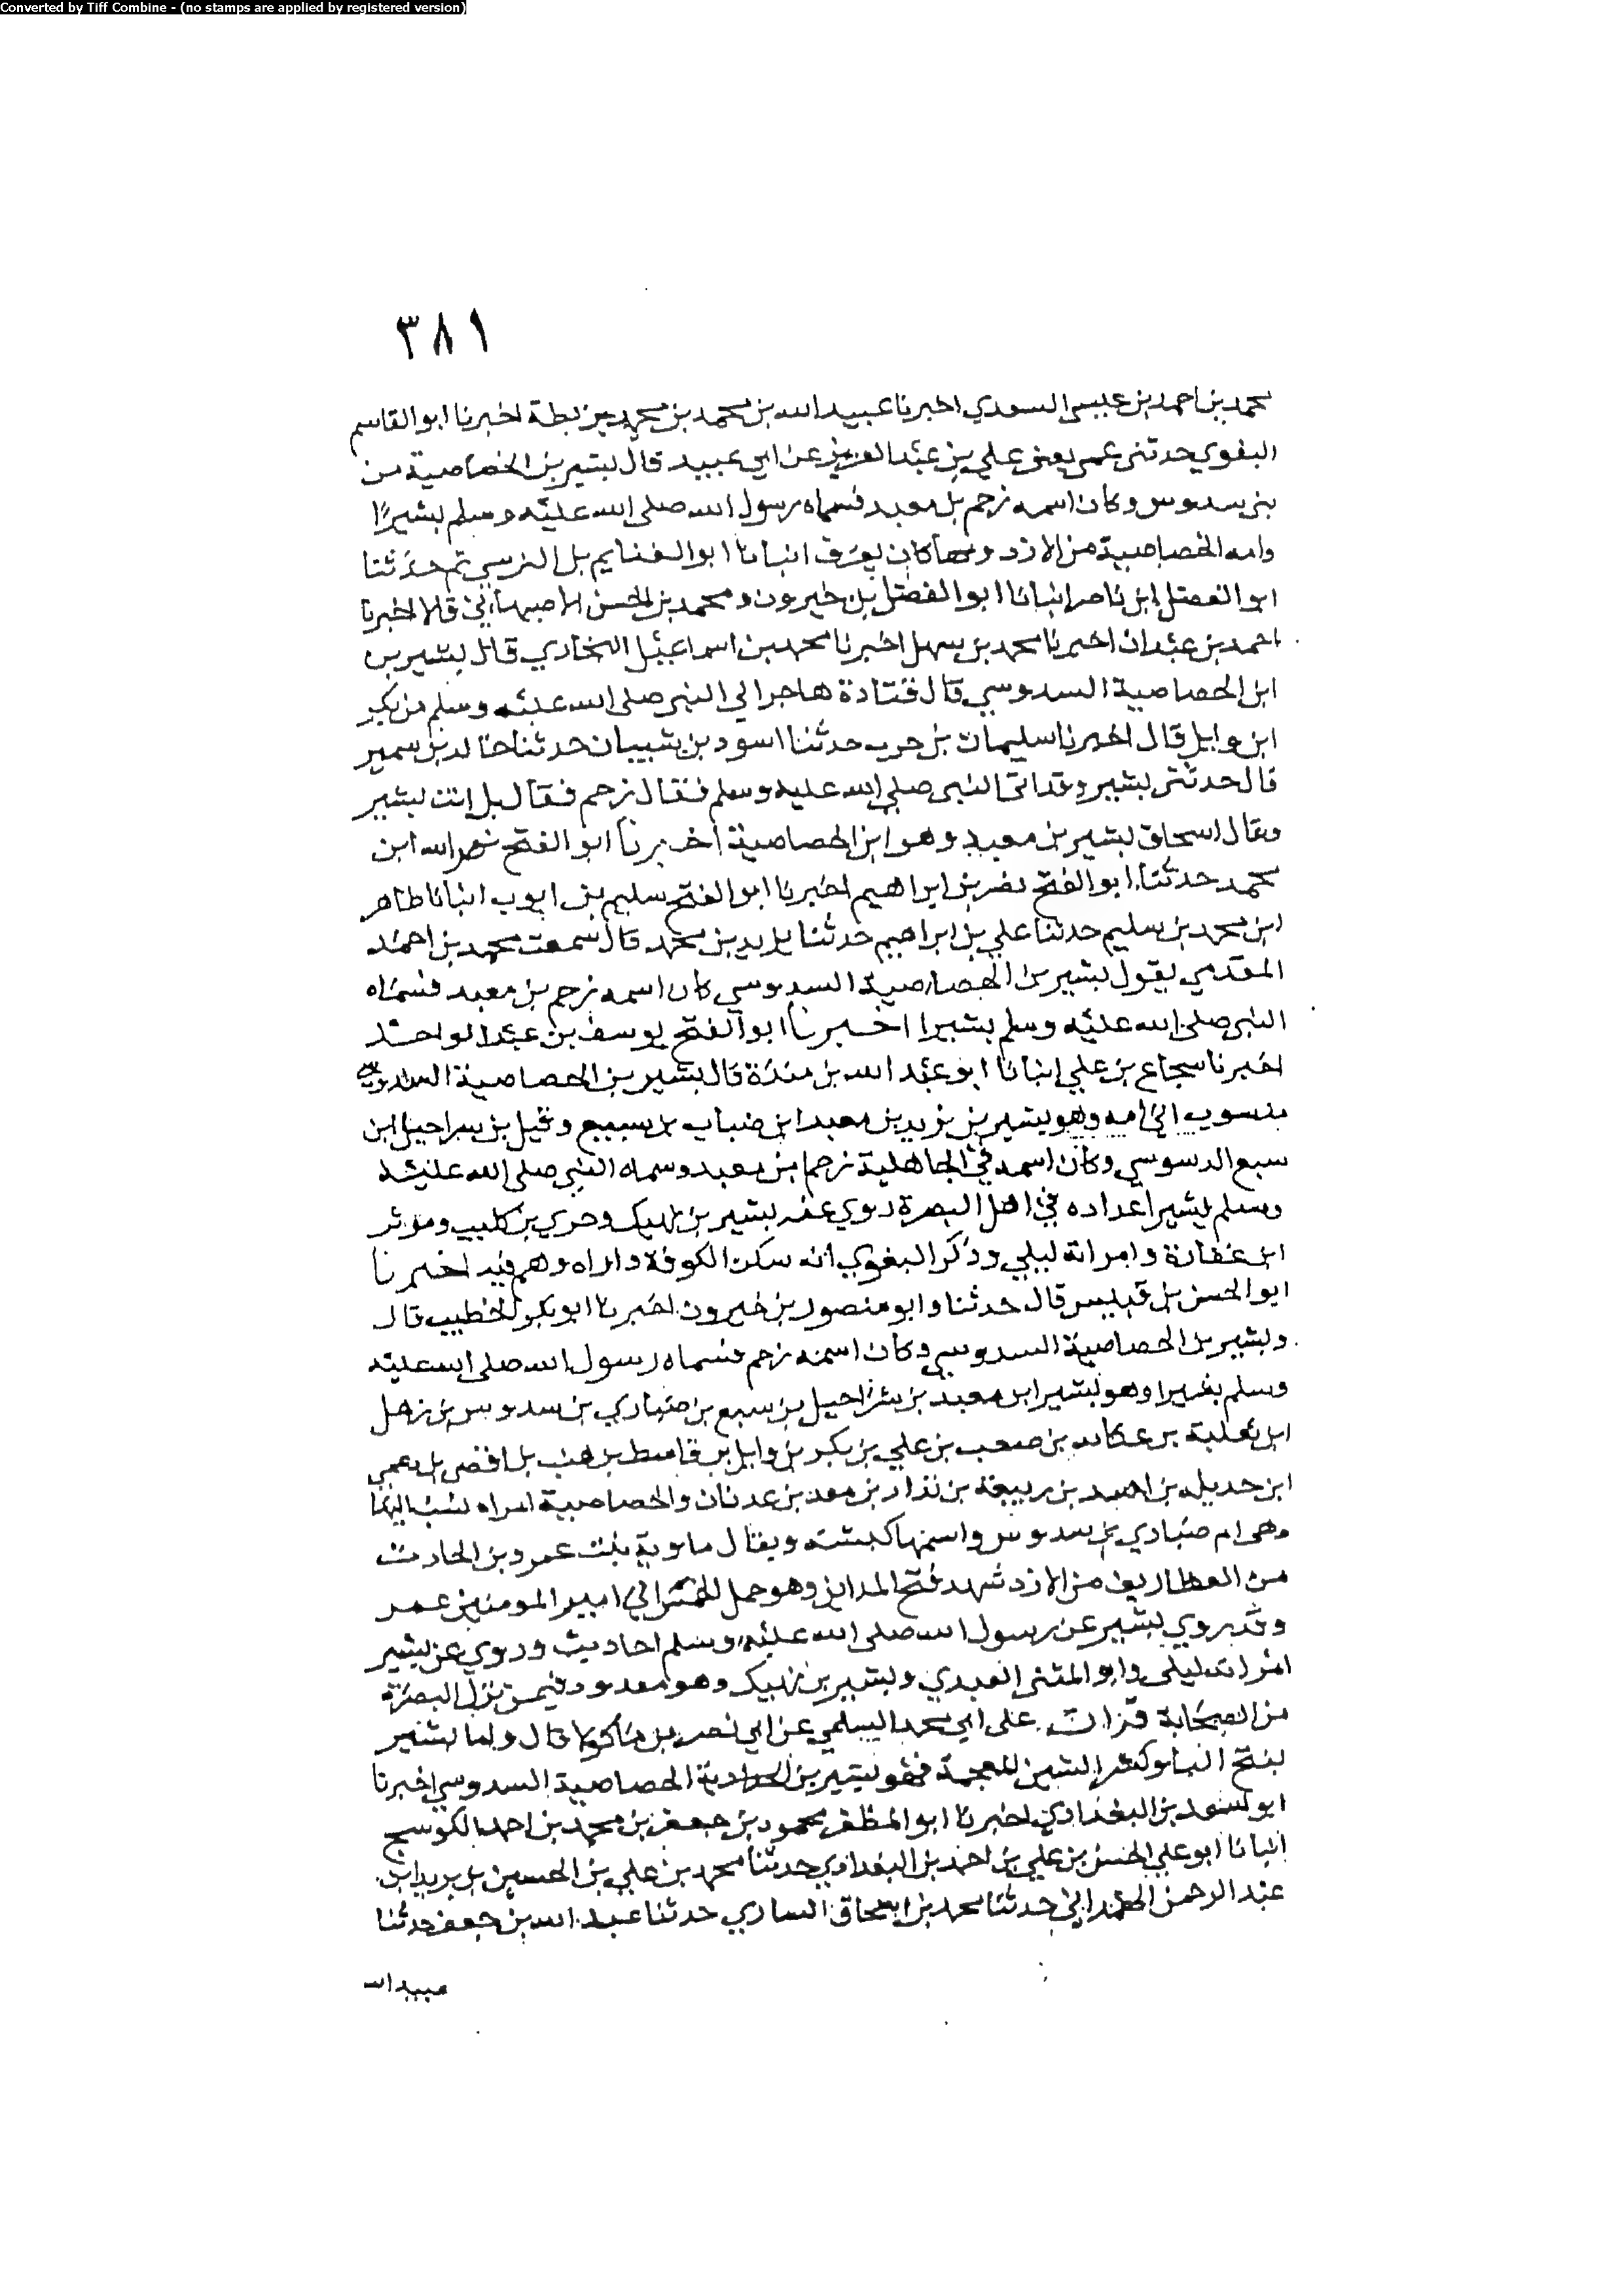 Converted by Tiff Combine - (no stamps are applied by registered version)
٣٨١
محمد بن احمد بن عيسى السعدي اخبرنا عبيد الله بن محمد بن محمد بن بطة اخبرنا ابو القاسم
البغوي حدثني عمي يعني علي بن عبد العزيز عن ابي عبيد قال بشير بن الخصاصية من
بني سدوس وكان اسمه زحم بن معبد فسماه رسول الله صلى الله عليه وسلم بشيرًا
وامه الخصاصية من الازد وبها كان يعرف انبانا ابو الغنايم بن النرسي ثم حدثنا
ابو الفضل ابن ناصر انبانا ابو الفضل بن خيرون ومحمد بن الحسن الاصبهاني قالا اخبرنا
احمد بن عبدان اخبرنا محمد بن سهل اخبرنا محمد بن اسماعيل البخاري قال بشير بن
ابن الخصاصية السدوسي قال قتادة هاجر الي النبي صلى الله عليه وسلم من بكر
ابن وايل قال اخبرنا سليمان بن حرب حدثنا اسود بن شيبان حدثنا خالد بن سمير
قال حدثني بشير وقد اتى النبي صلى الله عليه وسلم فقال زحم فقال بل انت بشير
وقال اسحاق بشير بن معبد وهو ابن الخصاصية اخبرنا ابو الفتح نصر الله ابن
محمد حدثنا ابو الفتح نصر بن ابراهيم اخبرنا ابو الفتح سليم بن ايوب انبانا طاهر
ابن محمد بن سليم حدثنا علي بن ابراهيم حدثنا يزيد بن محمد قال سمعت محمد بن احمد
المقدمي يقول بشير بن الخصاصية السدوسي كان اسمه زحم بن معبد فسماه
النبي صلى الله عليه وسلم بشيرا اخبرنا ابو الفتح يوسف بن عبد الواحد
اخبرنا شجاع بن علي انبانا ابو عبد الله بن مندة قال بشير بن الخصاصية السدوسي
منسوب الى امه وهو بشير بن يزيد بن معبد ابن ضباب بن سبيع وقيل بن شراحيل ابن
سبع الدسوسي وكان اسمه في الجاهلية زحم بن معبد وسماه النبي صلى الله عليه
وسلم بشيرا عداده في اهل البصرة روي عنه بشير بن نهيك وجري بن كليب وموثر
ابن عفازة وامراته ليلي وذكر البغوي انه سكن الكوفة واراه وهم فيه اخبرنا
ابو الحسن بن قبيس قال حدثنا وابو منصور بن خيرون اخبرنا ابو بكر الخطيب قال
وبشير بن الخصاصية السدوسي وكان اسمه زحم فسماه رسول الله صلى الله عليه
وسلم بشيرا وهو بشير ابن معبد بن شراحيل بن سبع بن ضباري بن سدوس بن زهل
ابن ثعلبة بن عكابه بن صعب بن علي بن بكر بن وايل بن قاسط بن هنب بن افضى بن دعمي
ابن جديله بن اسد بن ربيعة بن نزار بن معد بن عدنان والخصاصية امراه نسب اليها
وهي ام ضباري بن سدوس واسمها كبشه ويقال ماوية بنت عمرو بن الحارث
من الغطاريف من الازد شهد فتح المداين وهو حمل الخمس الي امير المومنين عمر
وقد روي بشير عن رسول الله صلى الله عليه وسلم احاديث وروي عن بشير
امراته ليلى وابو المثنى العبدي وبشير بن نهيك وهو معدود فيمن نزل البصرة
من الصحابة قرات على ابي محمد السلمي عن ابي نصر بن ماكولا قال واما بشير
بفتح البا وكسر الشين المعجمة فهو بشير بن الخصاصية السدوسي اخبرنا
ابو سعد بن البغدادي اخبرنا ابو المظفر محمود بن جعفر بن محمد بن احمد الكوسج
انبانا ابو علي الحسن بن علي بن احمد بن البغدادي حدثنا محمد بن علي بن الحسين بن يزيد ابن
عبد الرحمن الهمداني حدثنا محمد بن اسحاق الساري حدثنا عبد الله بن جعفر حدثنا
عبيد الله